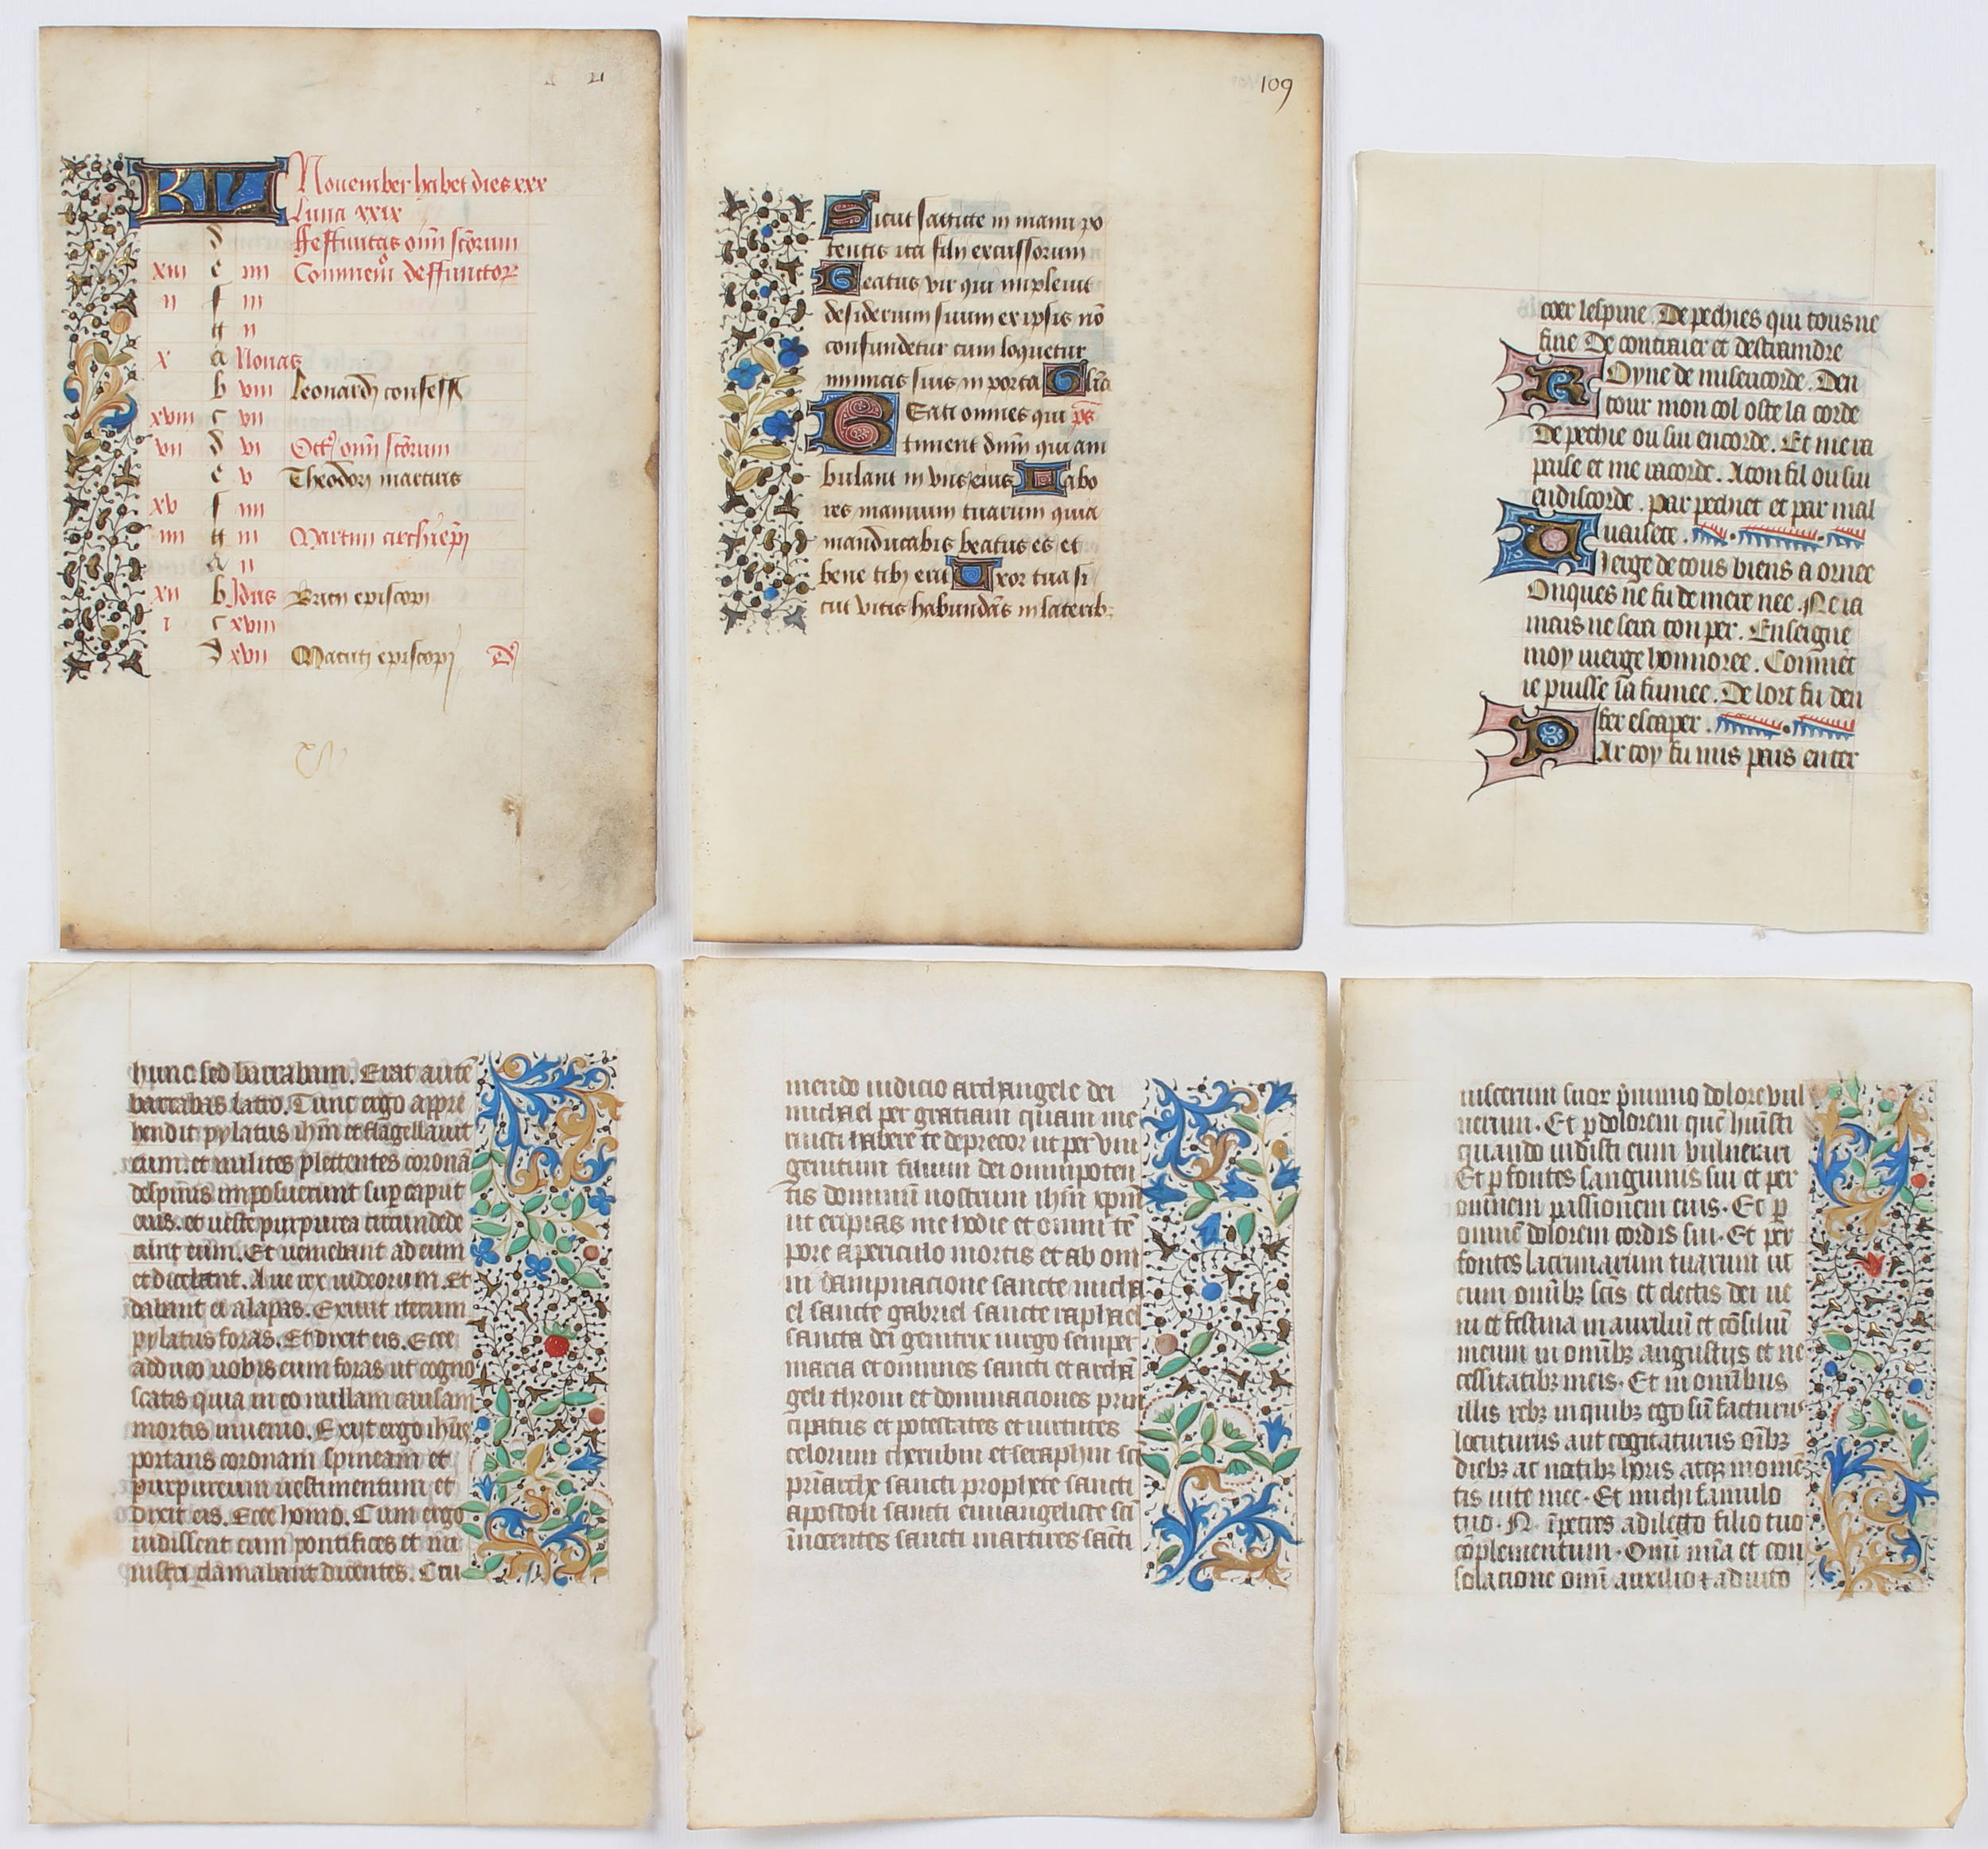 KL November habet dies xxx
Luna xxix
d Festivitas omī sctōrum
xiii e iiii Commem deffunctor
ii f iii
g ii
x a Nonas
b viii Leonardi confess
xviii c vii
vii d vi Oct omī sctōrum
e v Theodori martiris
xv f iiii
iiii g iii Martini archiepi
A ii
xii b Idus Bricii episcopi
i c xviii
d xvii Macuti episcopi
109
Sicut sagitte in manu po
tentis ita filii excussorum
Beatus vir qui implevit
desiderium suum ex ipsis nō
confundetur cum loquetur
inimicis suis in porta Glīa
Beati omnes qui ps
timent dnm̄ qui am
bulant in viis eius Labo
res manuum tuarum quia
manducabis beatus es et
bene tibi erit Uxor tua si
cut vitis habundās in laterib;
coer lespine. De pechies qui tous ne
fine De contraier et destraindre
Royne de misericorde. Den
tour mon col oste la corde
De pechie ou sui encorde. Et me ra
paise et me racorde. A ton fil ou sui
en discorde. par pechiet et par mal
uaisete.
Vierge de tous biens a ornee
Onques ne fu de mere nee. Ne ia
mais ne sera ton per. Enseigne
moy uierge honnoree. Commēt
ie puisse sa fumee. De lort fu den
fer escaper.
Par toy fu mis pais enter
hunc sed barrabam. Erat autē
barrabas latro. Tunc ergo appre
hendit pylatus ihm̄ et flagellauit
eum. et milites plectentes coronā
de spinis imposuerunt sup caput
eius. et ueste purpurea circundede
runt eum. Et ueniebant ad eum
et dicebant. Aue rex iudeorum. Et
dabant ei alapas. Exiuit iterum
pylatus foras. Et dixit eis. Ecce
adduco uobis eum foras ut cogno
scatis quia in eo nullam causam
mortis inuenio. Exijt ergo ihūs
portans coronam spineam et
purpureum uestimentum et
dixit eis. Ecce homo. Cum ergo
uidissent eum pontifices et mi
nistri clamabant dicentes. Cru
mendo iudicio archangele dei
michael per gratiam quam me
ruisti habere te deprecor ut per vni
genitum filium dei omnipoten
tis dominū nostrum ihm̄ xpm̄
ut eripias me hodie et omni tē
pore a periculo mortis et ab om
ni dampnacione sancte micha
el sancte gabriel sancte raphael
sancta dei genitrix uirgo semper
maria et omnnes sancti et archā
geli throni et dominaciones prin
cipatus et potestates et uirtutes
celorum cherubin et seraphin sci
p̄riarche sancti prophete sancti
apostoli sancti euuangeliste sci
īnocentes sancti martires sacti
uiscerum suor p̄ nimio dolore vul
nerum. Et p dolorem quē huīsti
quando uidisti eum vulnerari
Et p fontes sanguinis sui et per
omnem passionem eius. Et p
omnē dolorem cordis sui. Et per
fontes lacrimarum tuarum ut
cum omībz scīs et electis dei ue
ni et festina in auxiliū et cōsiliū
meum in omībz angustijs et ne
cessitatibz meis. Et in omībus
illis rebz in quibz ego sū facturus
locuturus aut cogitaturus oībz
diebz ac noctibz horis atqz momē
tis uite mee. Et michi famulo
tuo. N. īpetres a dilecto filio tuo
cōplementum. Omī mīa et con
solacione omī auxilio & adiuto